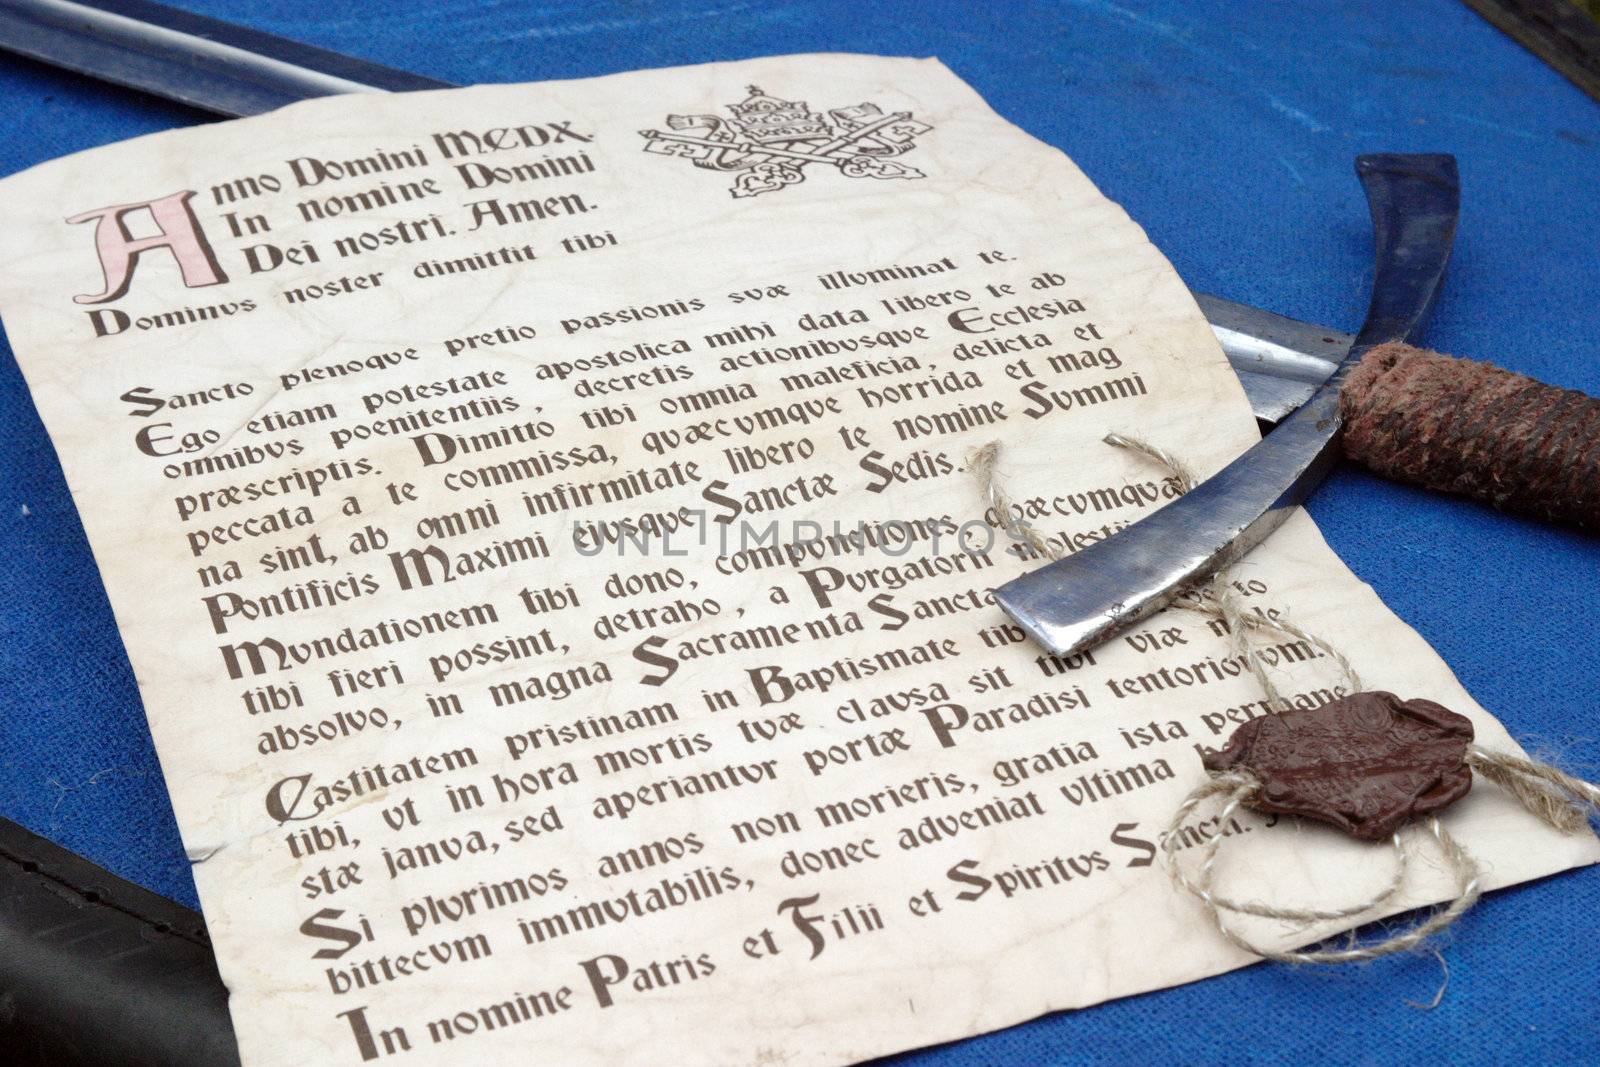 Anno Domini MCDX.
In nomine Domini
Dei nostri. Amen.
Dominus noster dimittit tibi
Sancto plenoque pretio passionis suæ illuminat te.
Ego etiam potestate apostolica mihi data libero te ab
omnibus poenitentiis, decretis actionibusque Ecclesia
præscriptis. Dimitto tibi omnia maleficia, delicta et
peccata a te commissa, quæcumque horrida et mag
na sint, ab omni infirmitate libero te nomine Summi
Pontificis Maximi eiusque Sanctæ Sedis.
Mundationem tibi dono, compunctiones, quæcumquæ
tibi fieri possint, detraho, a Purgatorii molestii
absolvo, in magna Sacramenta Sancta
Castitatem pristinam in Baptismate tibi
tibi, ut in hora mortis tuæ clausa sit tibi viæ
stæ janua, sed aperiantur portæ Paradisi tentoriorum.
Si plurimos annos non morieris, gratia ista permane
bittecum immutabilis, donec adveniat ultima
In nomine Patris et Filii et Spiritus Sancti.
UNLIMPHOTOS